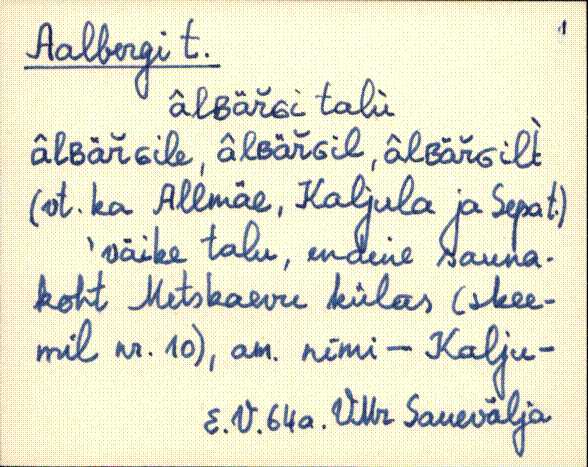 1
Aalbergi t.
âlʙäř̆ɢi talù
âlʙäř̆ɢile, âlʙäř̆ɢil, âlʙäř̆ɢilt̀
(vt. ka Allmäe, Kaljula ja Sepa t.)
'väike talu, endine sauna-
koht Metskaevu külas (skee-
mil nr. 10), am. nimi – Kalju-
E.V. 64a. VMr Sauevälja